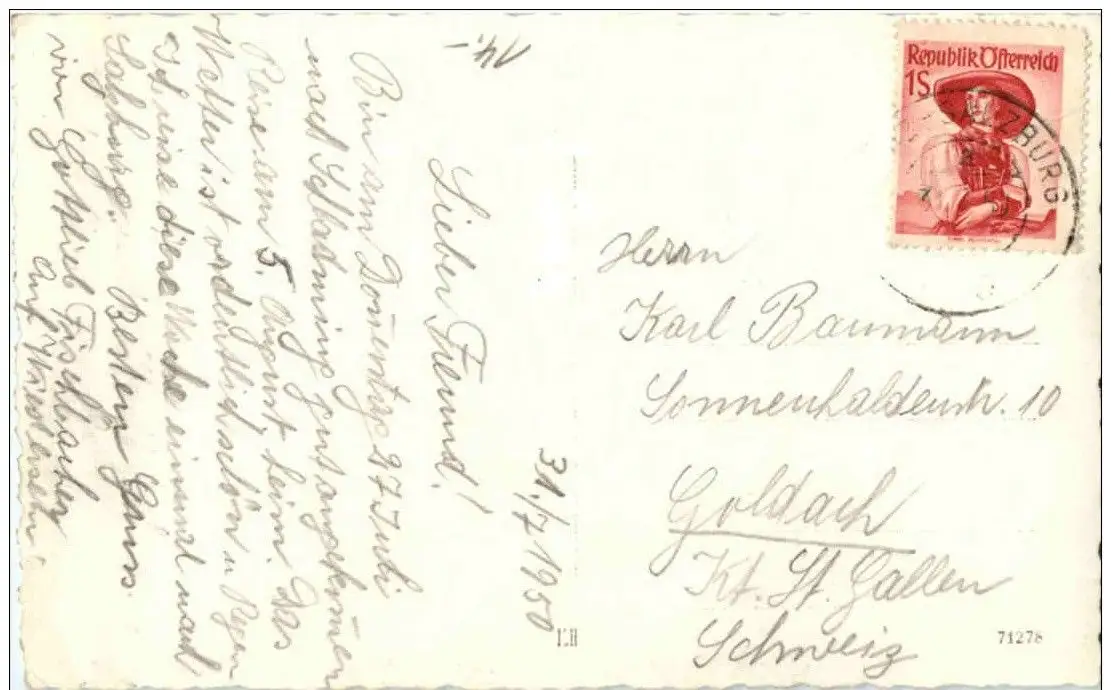 31./7 1950
Lieber Freund!
Bin am Donnerstag 27 Juli
nach Schladming gut angekommen
Reise am 5. August heim. Das
Wetter ist ordentlich schön u Regen
Ich reise diese Woche einmal nach
Salzburg. Besten Gruss.
von Gottlieb Fischbacher
Auf Wiedersehn.
14.-
Republik Österreich
1S
SALZBURG
Herrn
Karl Baumann
Sonnenhaldenstr. 10
Goldach
Kt. St. Gallen
Schweiz
71278